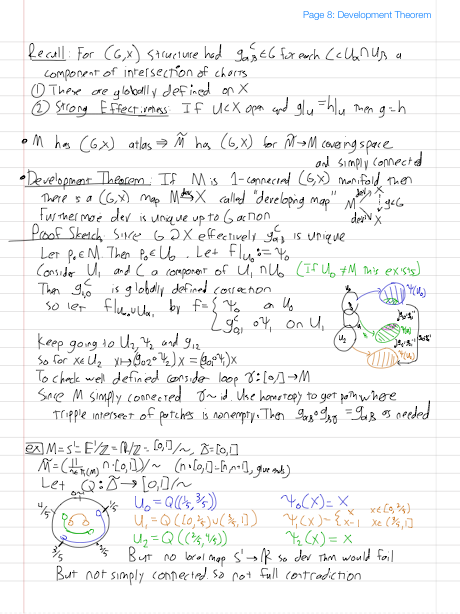 Page 8: Development Theorem
Recall: For (G,X) structure had g_{αβ}^C ∈ G for each C ⊂ U_α ∩ U_β a
component of intersection of charts
① These are globally defined on X
② Strong Effectiveness: If U⊂X open and g|_U = h|_U then g=h
• M has (G,X) atlas ⇒ M̃ has (G,X) for M̃→M covering space
and simply connected
• Development Theorem: If M is 1-connected (G,X) manifold then
there is a (G,X) map M →^{dev} X called "developing map"
Furthermore dev is unique up to G action
M dev X
dev' X
g∈G
Proof Sketch: Since G ↻ X effectively g_{αβ}^C is unique
Let p₀∈M. Then p₀∈U₀. Let f|_{U₀} := Ψ₀
Consider U₁ and C a component of U₁∩U₀ (If U₀≠M this exists)
Then g_{10}^C is globally defined
so let f|_{U₀∪U₁} by f = { Ψ₀ on U₀
g_{01}^C ∘ Ψ₁ on U₁
Keep going to U₂, Ψ₂ and g₁₂
So for x∈U₂ x↦(g₀₂∘Ψ₂)x = (g₀₁∘Ψ₁)x
To check well defined consider loop γ:[0,1]→M
Since M simply connected γ~id. Use homotopy to get path where
tripple intersect of patches is nonempty. Then g_{αβ}∘g_{βγ} = g_{αβ} as needed
Ψ(U₀)
U₂
Ψ(U₁)
Ψ(U₂)
ex M=S¹=E¹/Z=R/Z=[0,1]/~, D̃=[0,1]
M̃=(⨆_{n∈π₁(M)} n·[0,1])/~ (n·[0,1]=[n,n+1], glue ends)
Let Q: D̃→[0,1]/~
U₀ = Q((1/5, 3/5)) Ψ₀(x)=x
U₁ = Q([0,2/5)∪(3/5,1]) Ψ₁(x)={ x x∈[0,2/5)
x-1 x∈(3/5,1]
U₂ = Q((2/5,4/5)) Ψ₂(x)=x
4/5
1/5
3/5
2/5
But no local map S¹→R so dev thm would fail
But not simply connected so not full contradiction